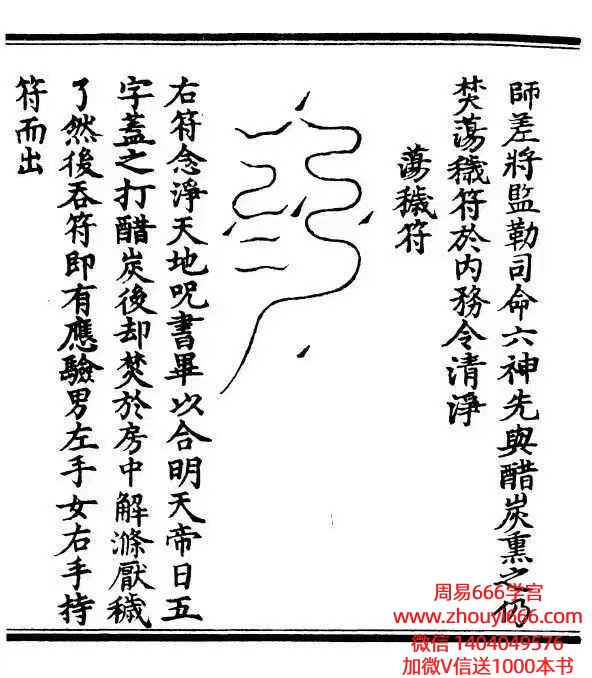 師差將監勒司命六神先與醋炭熏之仍
焚蕩穢符於内務令清淨
蕩穢符
右符念淨天地呪書畢以合明天帝日五
字蓋之打醋炭後却焚於房中解滌厭穢
了然後吞符即有應驗男左手女右手持
符而出
周易666学官
www.zhouyi666.com
微信 1404049576
加微V信送1000本书